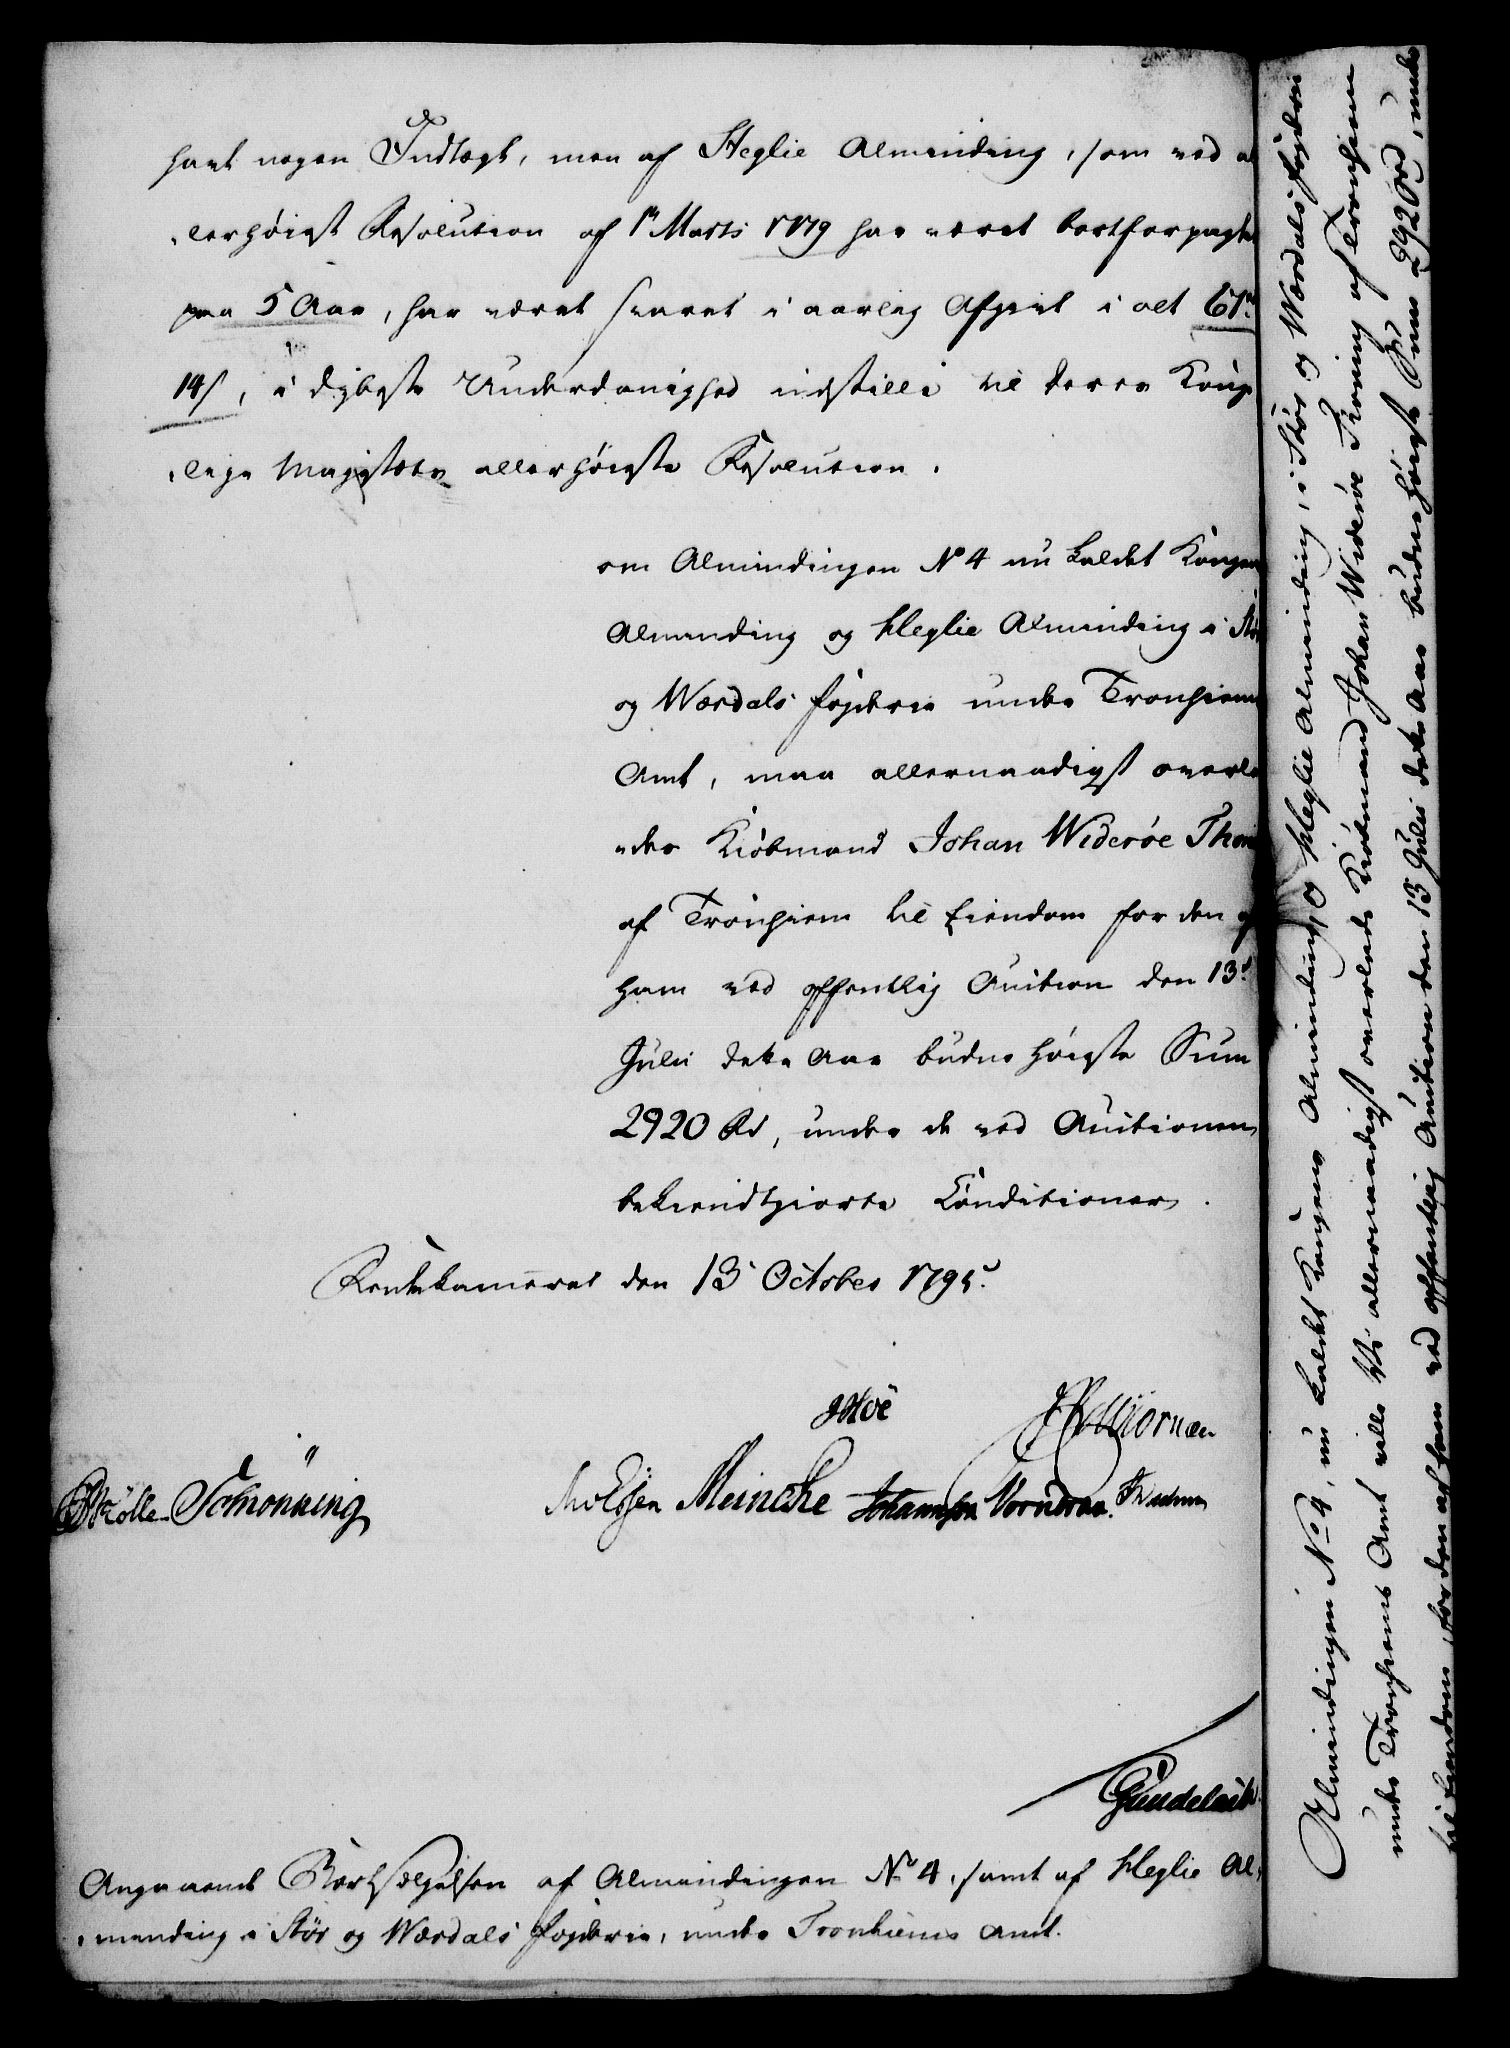 havt nogen Indtægt, men af Heglie Alminding, som ved al
„lerhøiest Resolution af 1te Marts 1779 har været bortforpagtet
paa 5 Aar, har været svaret i aarlig Afgivt i alt 61rd
14s, i dybeste Underdanighed indstille til Deres Konge
„lige Majestæts allerhøieste Resolution.
om Almindingen No 4 nu kaldet Kongens
Alminding og Heglie Alminding i Stør
og Værdals Fogderie under Tronhiems
Amt, maa allernaadigst overla
„des Kiøbmand Johan Widerøe Thon
af Tronhiem til Eiendom for den af
ham ved offentlig Auction den 13de
Julii dette Aar budne høieste Sum
2920 Rd, under de ved Auctionen
bekiendtgiorte Conditioner.
Rentekammeret den 13 October 1795.
JHoë
Schmønning
Meincke Johannsen Vorndran.
Gundelach
Angaaende Bortsælgelsen af Almindingen No 4, samt af Heglie Al„
„minding i Stør og Wærdals Fogderie, under Tronhiems Amt.
Almindingen No 4, nu kaldet Kongens Alminding, og Heglie Alminding, i Stør og Wærdals Fogderie
under Tronhiems Amt ville Vi allernaadigst overlade Kiøbmand Johan Widerøe Thoning af Tronhiem
til Eiendom, for den af ham ved offentlig Auction den 13 Julii dette Aar budne høieste Sum 2920 Rd, under